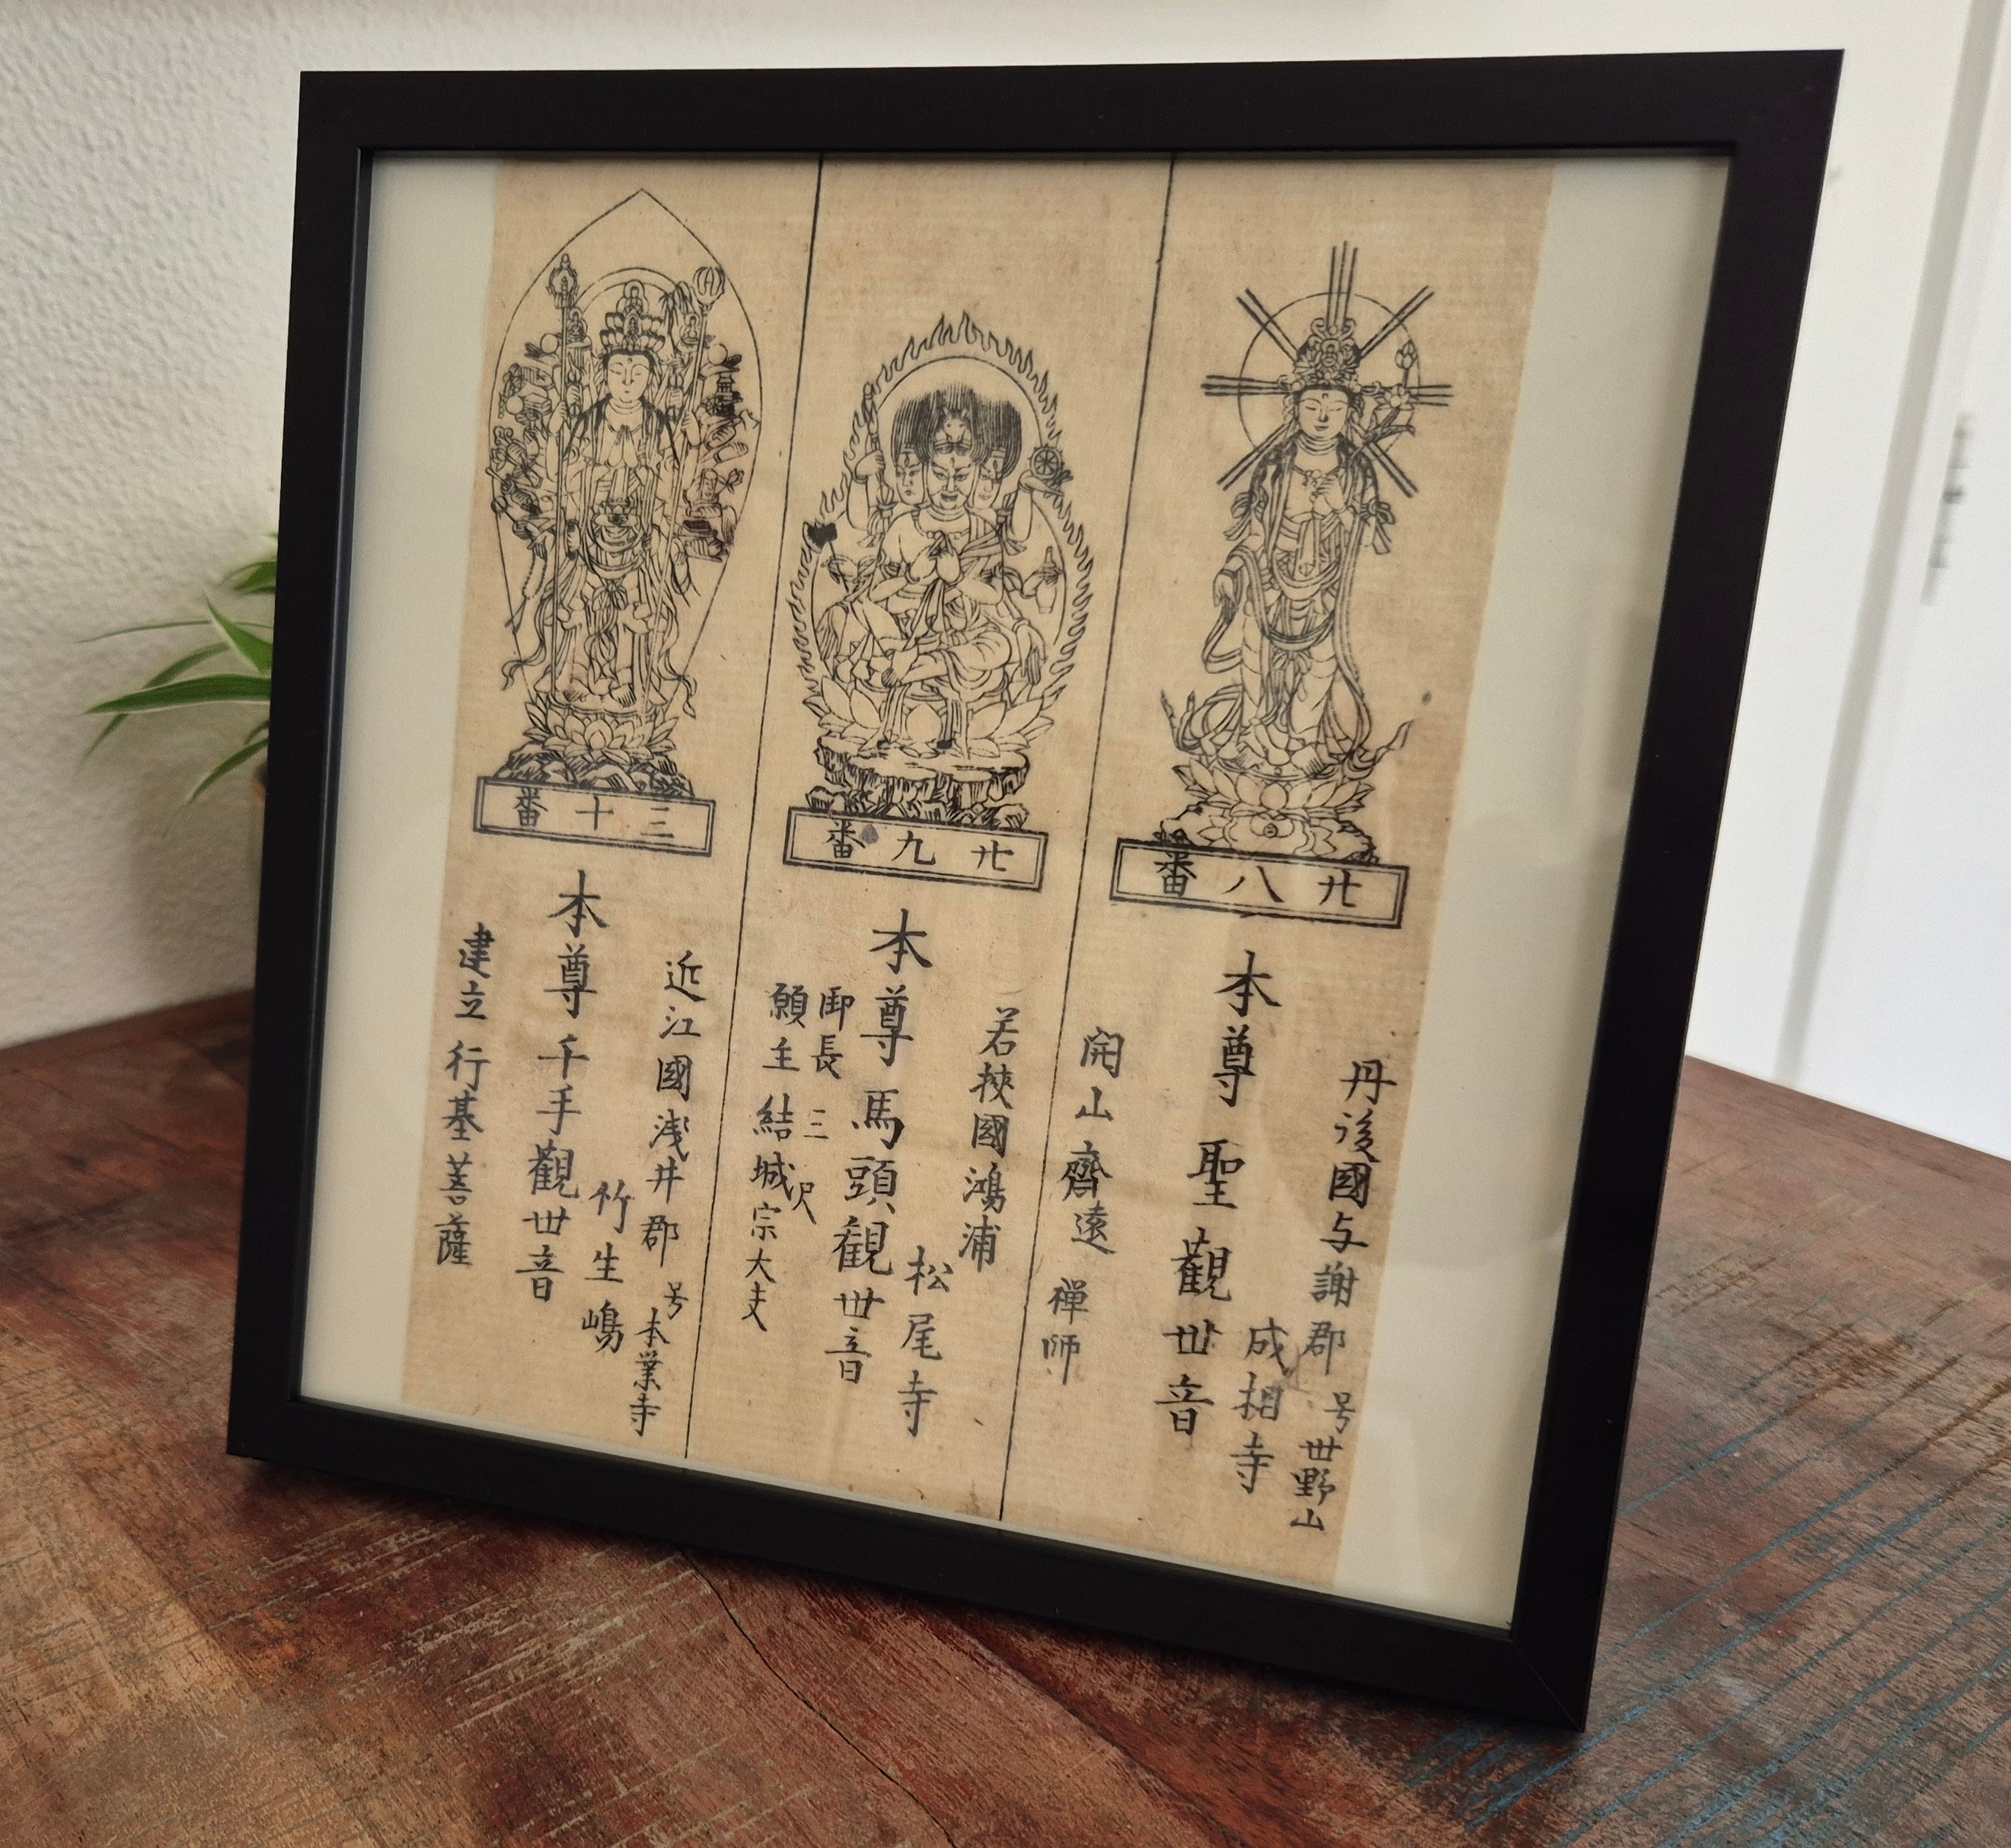 廿八番
丹後國与謝郡
号世野山
成相寺
本尊 聖觀世音
開山齊遠禅師
廿九番
若狹國鴻浦
松尾寺
本尊 馬頭觀世音
御長三尺
願主結城宗大夫
三十番
近江國浅井郡
号本業寺
竹生嶋
本尊千手觀世音
建立行基菩薩